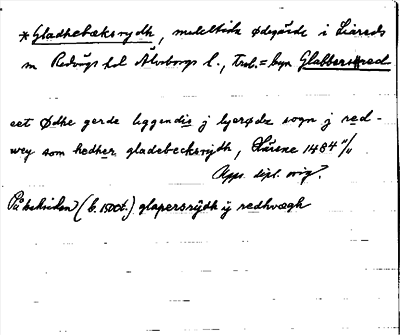 *Gladhebæksrydh, medeltida ödegärde i Liareds
sn Redvägs hd Älvsborgs l., Trol. = byn Glabbarered
eet Ødhe gerde liggendis j lyerødz sogn j red-
wey som hedher gladebecksrydh, Lärene 1484 11/11
Opps. dipl. orig.
På baksidan (b. 1500t.) glapersrydh ij redhwægh